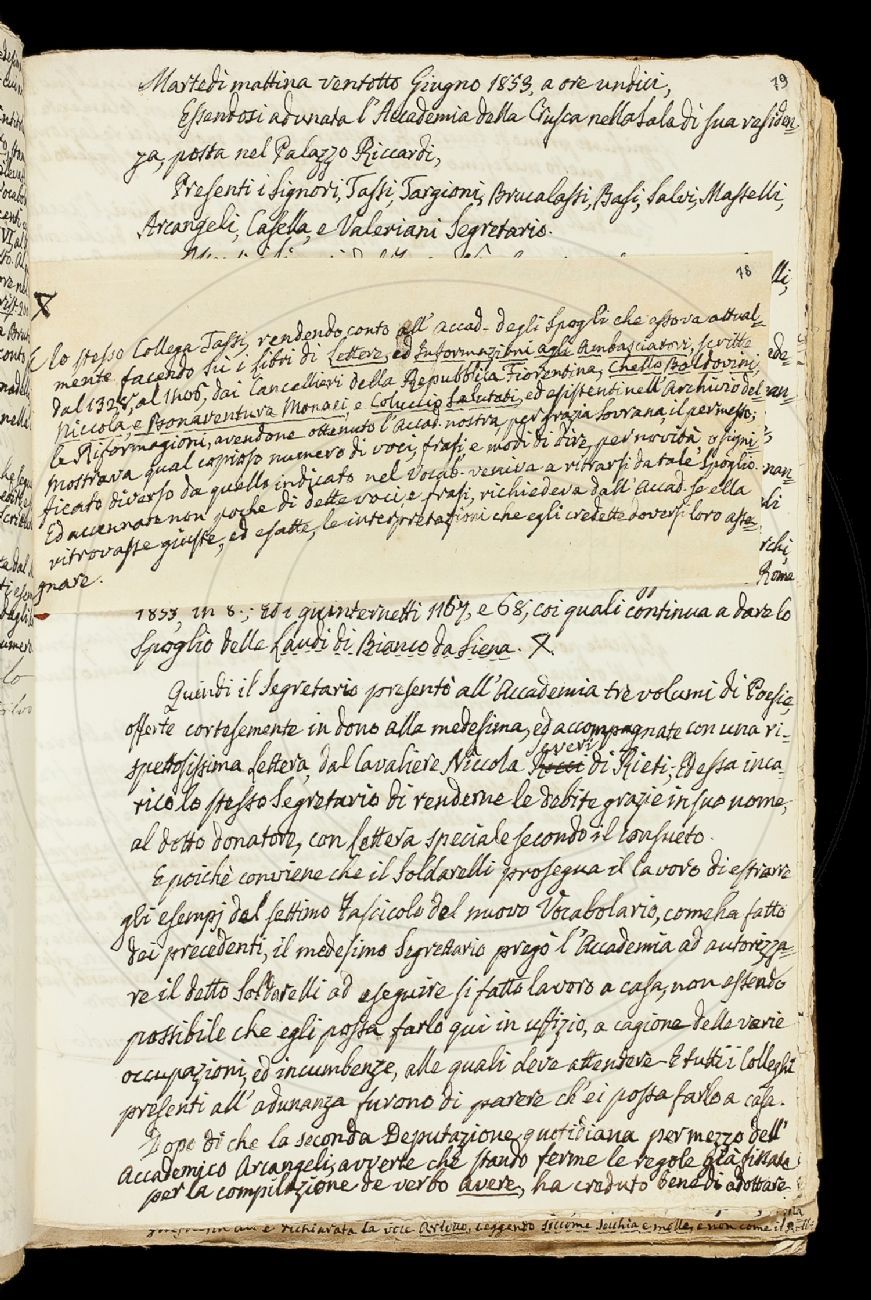 79
Martedì mattina ventotto Giugno 1853, a ore undici,
Essendosi adunata l'Accademia della Crusca nella Sala di sua residen=
za, posta nel Palazzo Riccardi,
Presenti i Signori, Tassi, Targioni, Brucalassi, Basi, Salvi, Masselli,
Arcangeli, Casella, e Valeriani Segretario.
78
X
E lo stesso Collega Tassi, rendendo conto all'accad. degli Spogli che essova attual=
mente facendo sui i libri di Lettere, ed Informazioni agli Ambasciatori, scritte
dal 1325, al 1406, dai Cancellieri della Repubblica Fiorentina, Chello Baldovini,
Niccola, e Bonaventura Monaci, e Coluccio Salutati, ed esistenti nell'Archivio del=
le Riformagioni, avendone ottenuto l'Accad. nostra, per grazia sovrana, il permesso;
mostrava qual copioso numero di voci, frasi, e modi di dire, per novità o signi=
ficato diverso da quello indicato nel Vocab. veniva a ritrarsi da tale Spoglio.
Ed accennate non poche di dette voci, e frasi, richiedeva dall'Accad. se ella
ritrovasse giuste, ed esatte, le interpretazioni che egli credette doversi loro asse=
gnare.
1853, in 8.; Ed i quinternetti 1167, e 68, coi quali continua a dare lo
Spoglio delle Laudi di Bianco da Siena. X.
Quindi il Segretario presentò all'Accademia tre volumi di Poesie,
offerte cortesemente in dono alla medesima, ed accompagnate con una ri=
spettosissima Lettera, dal Cavaliere Niccola di Rieti; Ed essa inca=
ricò lo stesso Segretario di renderne le debite grazie in suo nome,
al detto donatore, con lettera speciale secondo il consueto.
E poichè conviene che il Soldarelli prosegua il lavoro di estrarre
gli esempj del settimo Fascicolo del nuovo Vocabolario, come ha fatto
dei precedenti, il medesimo Segretario pregò l'Accademia ad autorizza=
re il detto Soldarelli ad eseguire sì fatto lavoro a casa, non essendo
possibile che egli possa farlo qui in uffizio, a cagione delle varie
occupazioni, ed incumbenze, alle quali deve attendere. E tutti i Colleghi
presenti all'adunanza furono di parere ch'ei possa farlo a casa.
Dopo di che la seconda Deputazione quotidiana per mezzo dell'
Accademico Arcangeli, avverte che stando ferme le regole già fissate
per la compilazione de verbo avere, ha creduto bene di adottare
e richiamata la voce leggendo siccome secchia e molle, e non come il